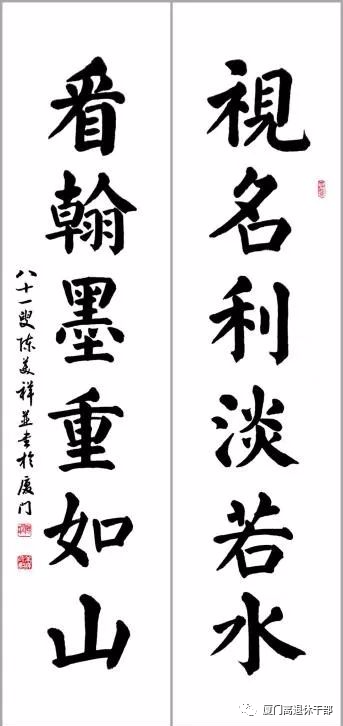 視名利淡若水
看翰墨重如山
八十一叟陈美祥並书於厦门
厦门离退休干部